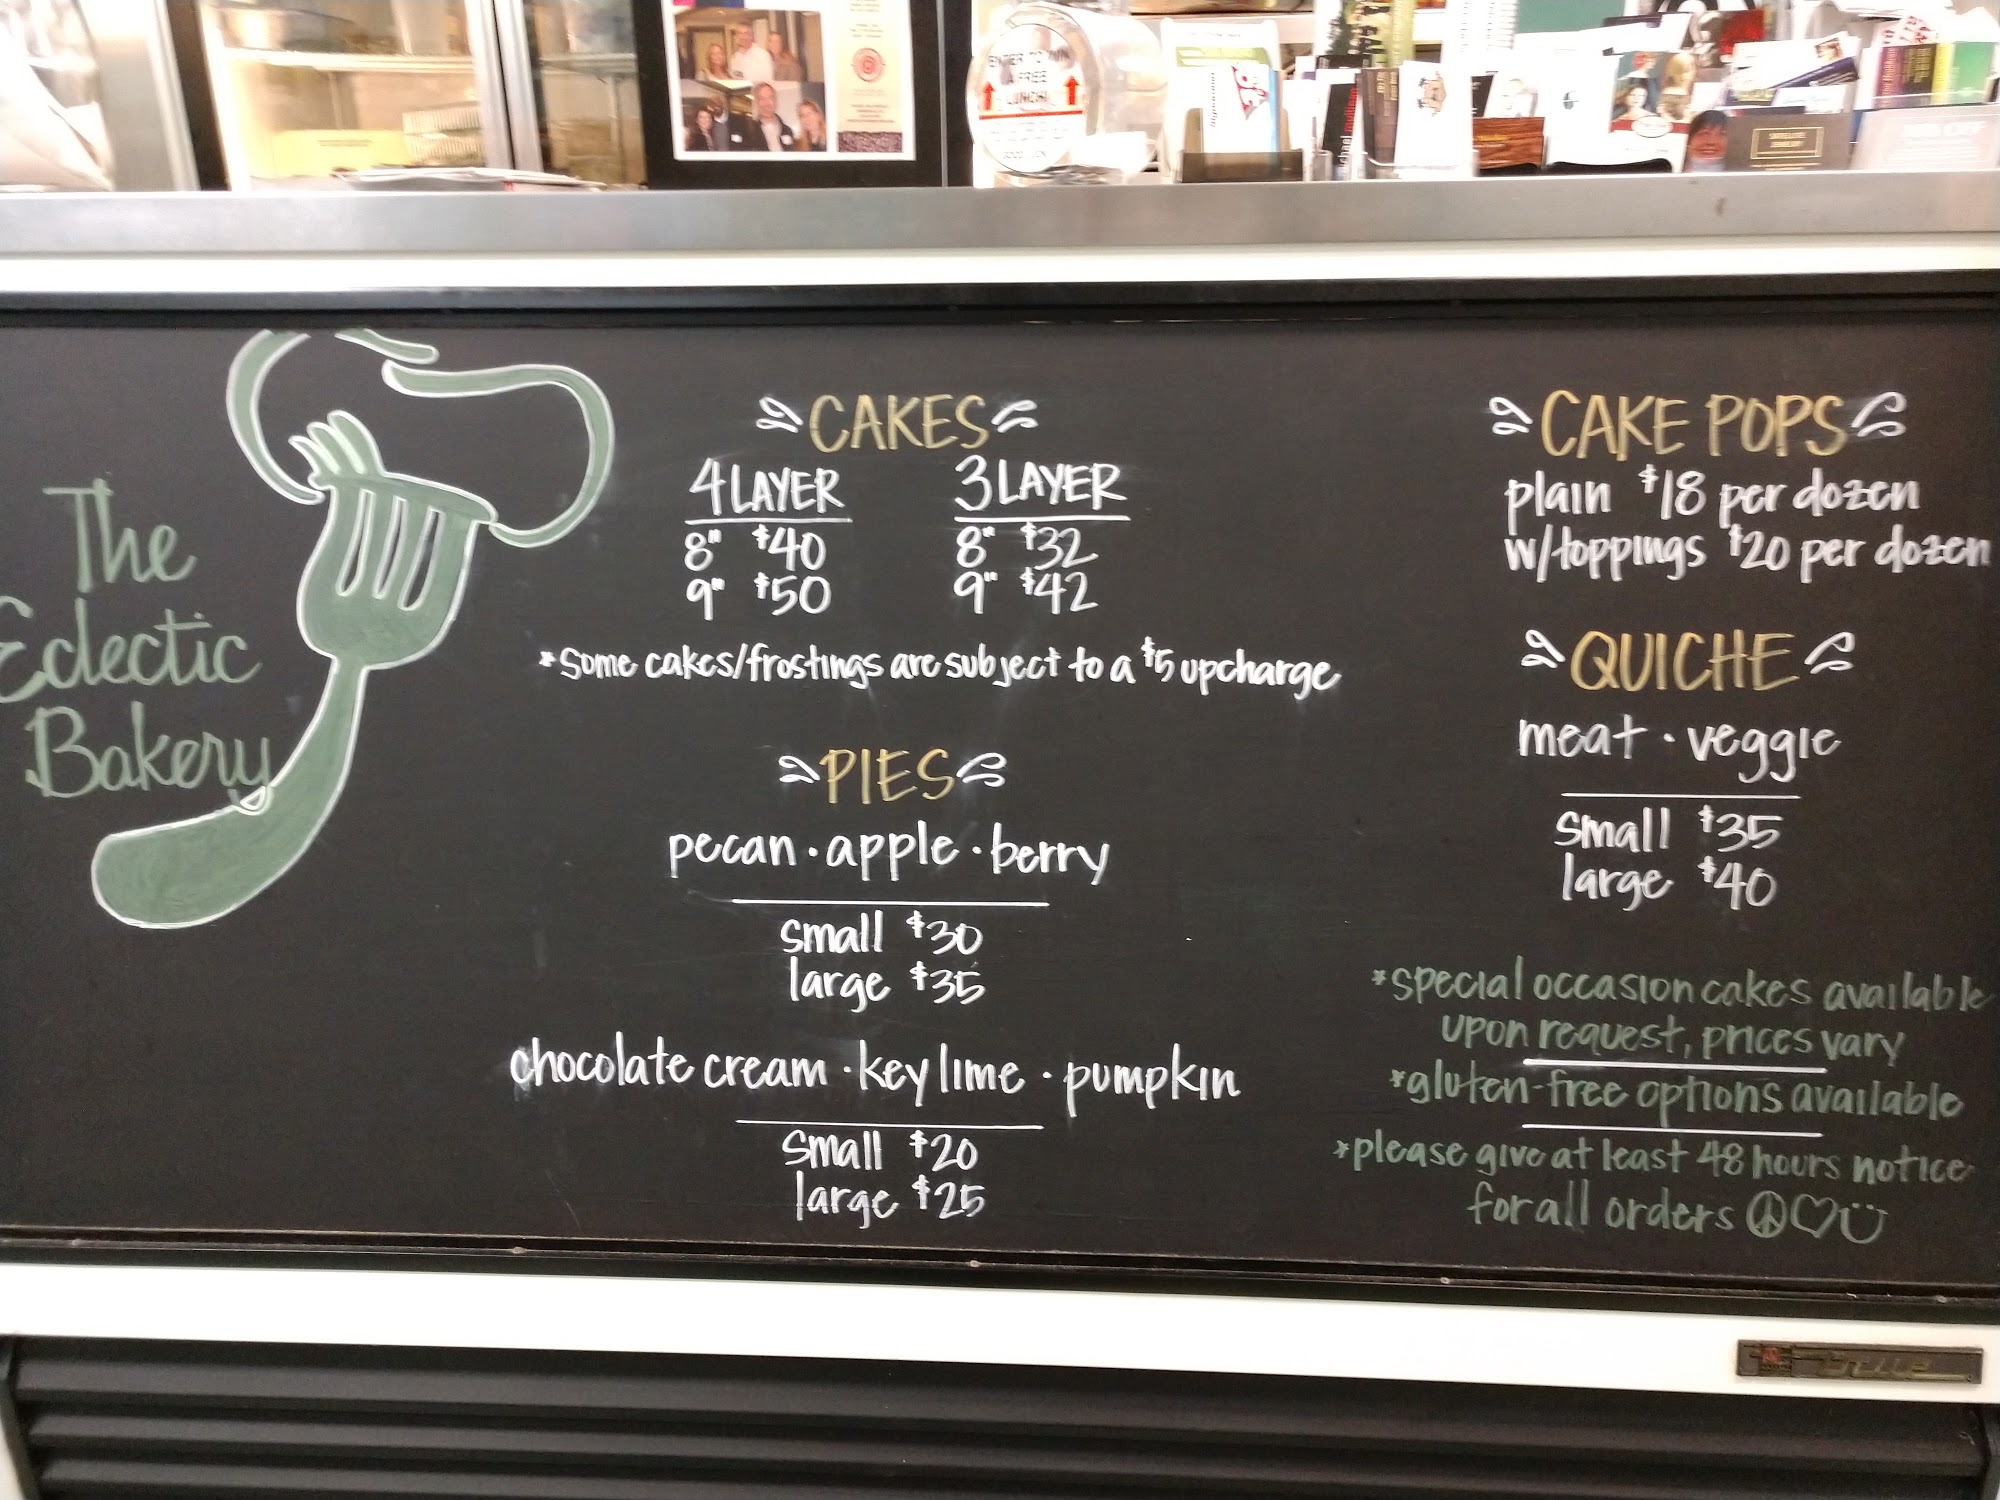 ENTER TO WIN
A FREE
LUNCH!
The
Eclectic
Bakery
CAKES
4 LAYER
8" $40
9" $50
3 LAYER
8" $32
9" $42
*some cakes/frostings are subject to a $5 upcharge
PIES
pecan · apple · berry
small $30
large $35
chocolate cream · key lime · pumpkin
small $20
large $25
CAKE POPS
plain $18 per dozen
w/toppings $20 per dozen
QUICHE
meat · veggie
small $35
large $40
*special occasion cakes available
upon request, prices vary
*gluten-free options available
*please give at least 48 hours notice
for all orders
True